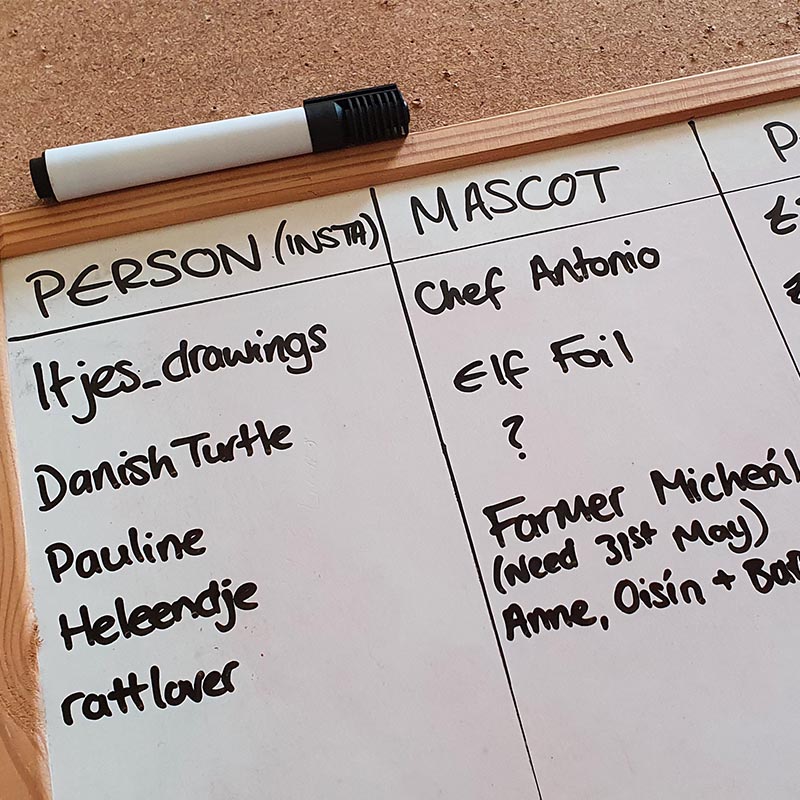 PERSON (INSTA) MASCOT
ltjes_drawings Chef Antonio
Danish Turtle Elf Foil
Pauline ?
Heleendje Farmer Micheál
(Need 31st May)
rattlover Anne, Oisín +